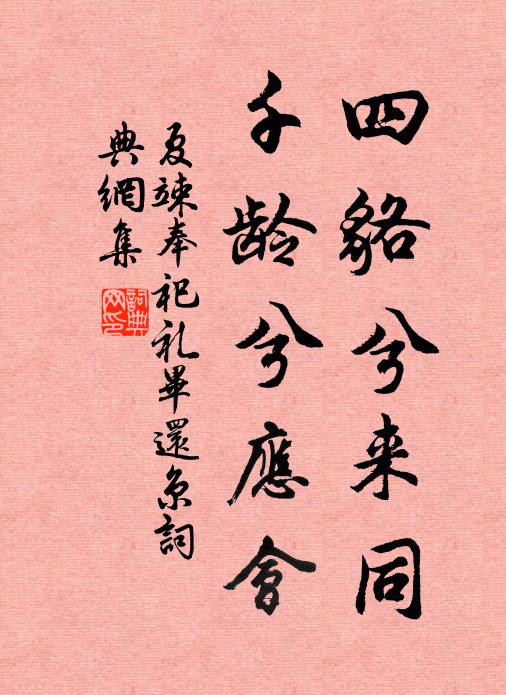 四貉兮来同
千龄兮應會
夏竦奉祀礼畢還京詞
典網集
詞典網印